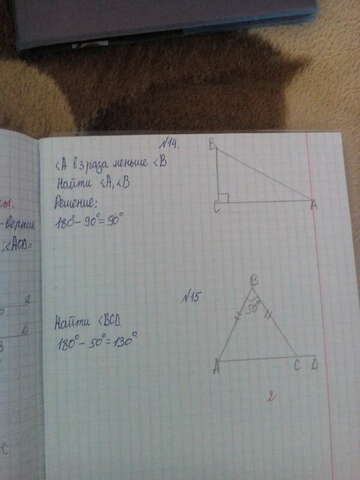 №14.
<A в 3 раза меньше <B
Найти <A, <B
Решение:
180°-90°=90°
B
C
A
№15
Найти <BCD
180°-50°=130°
B
50°
A
C
D
2
ы.
-верши
;<ACD=